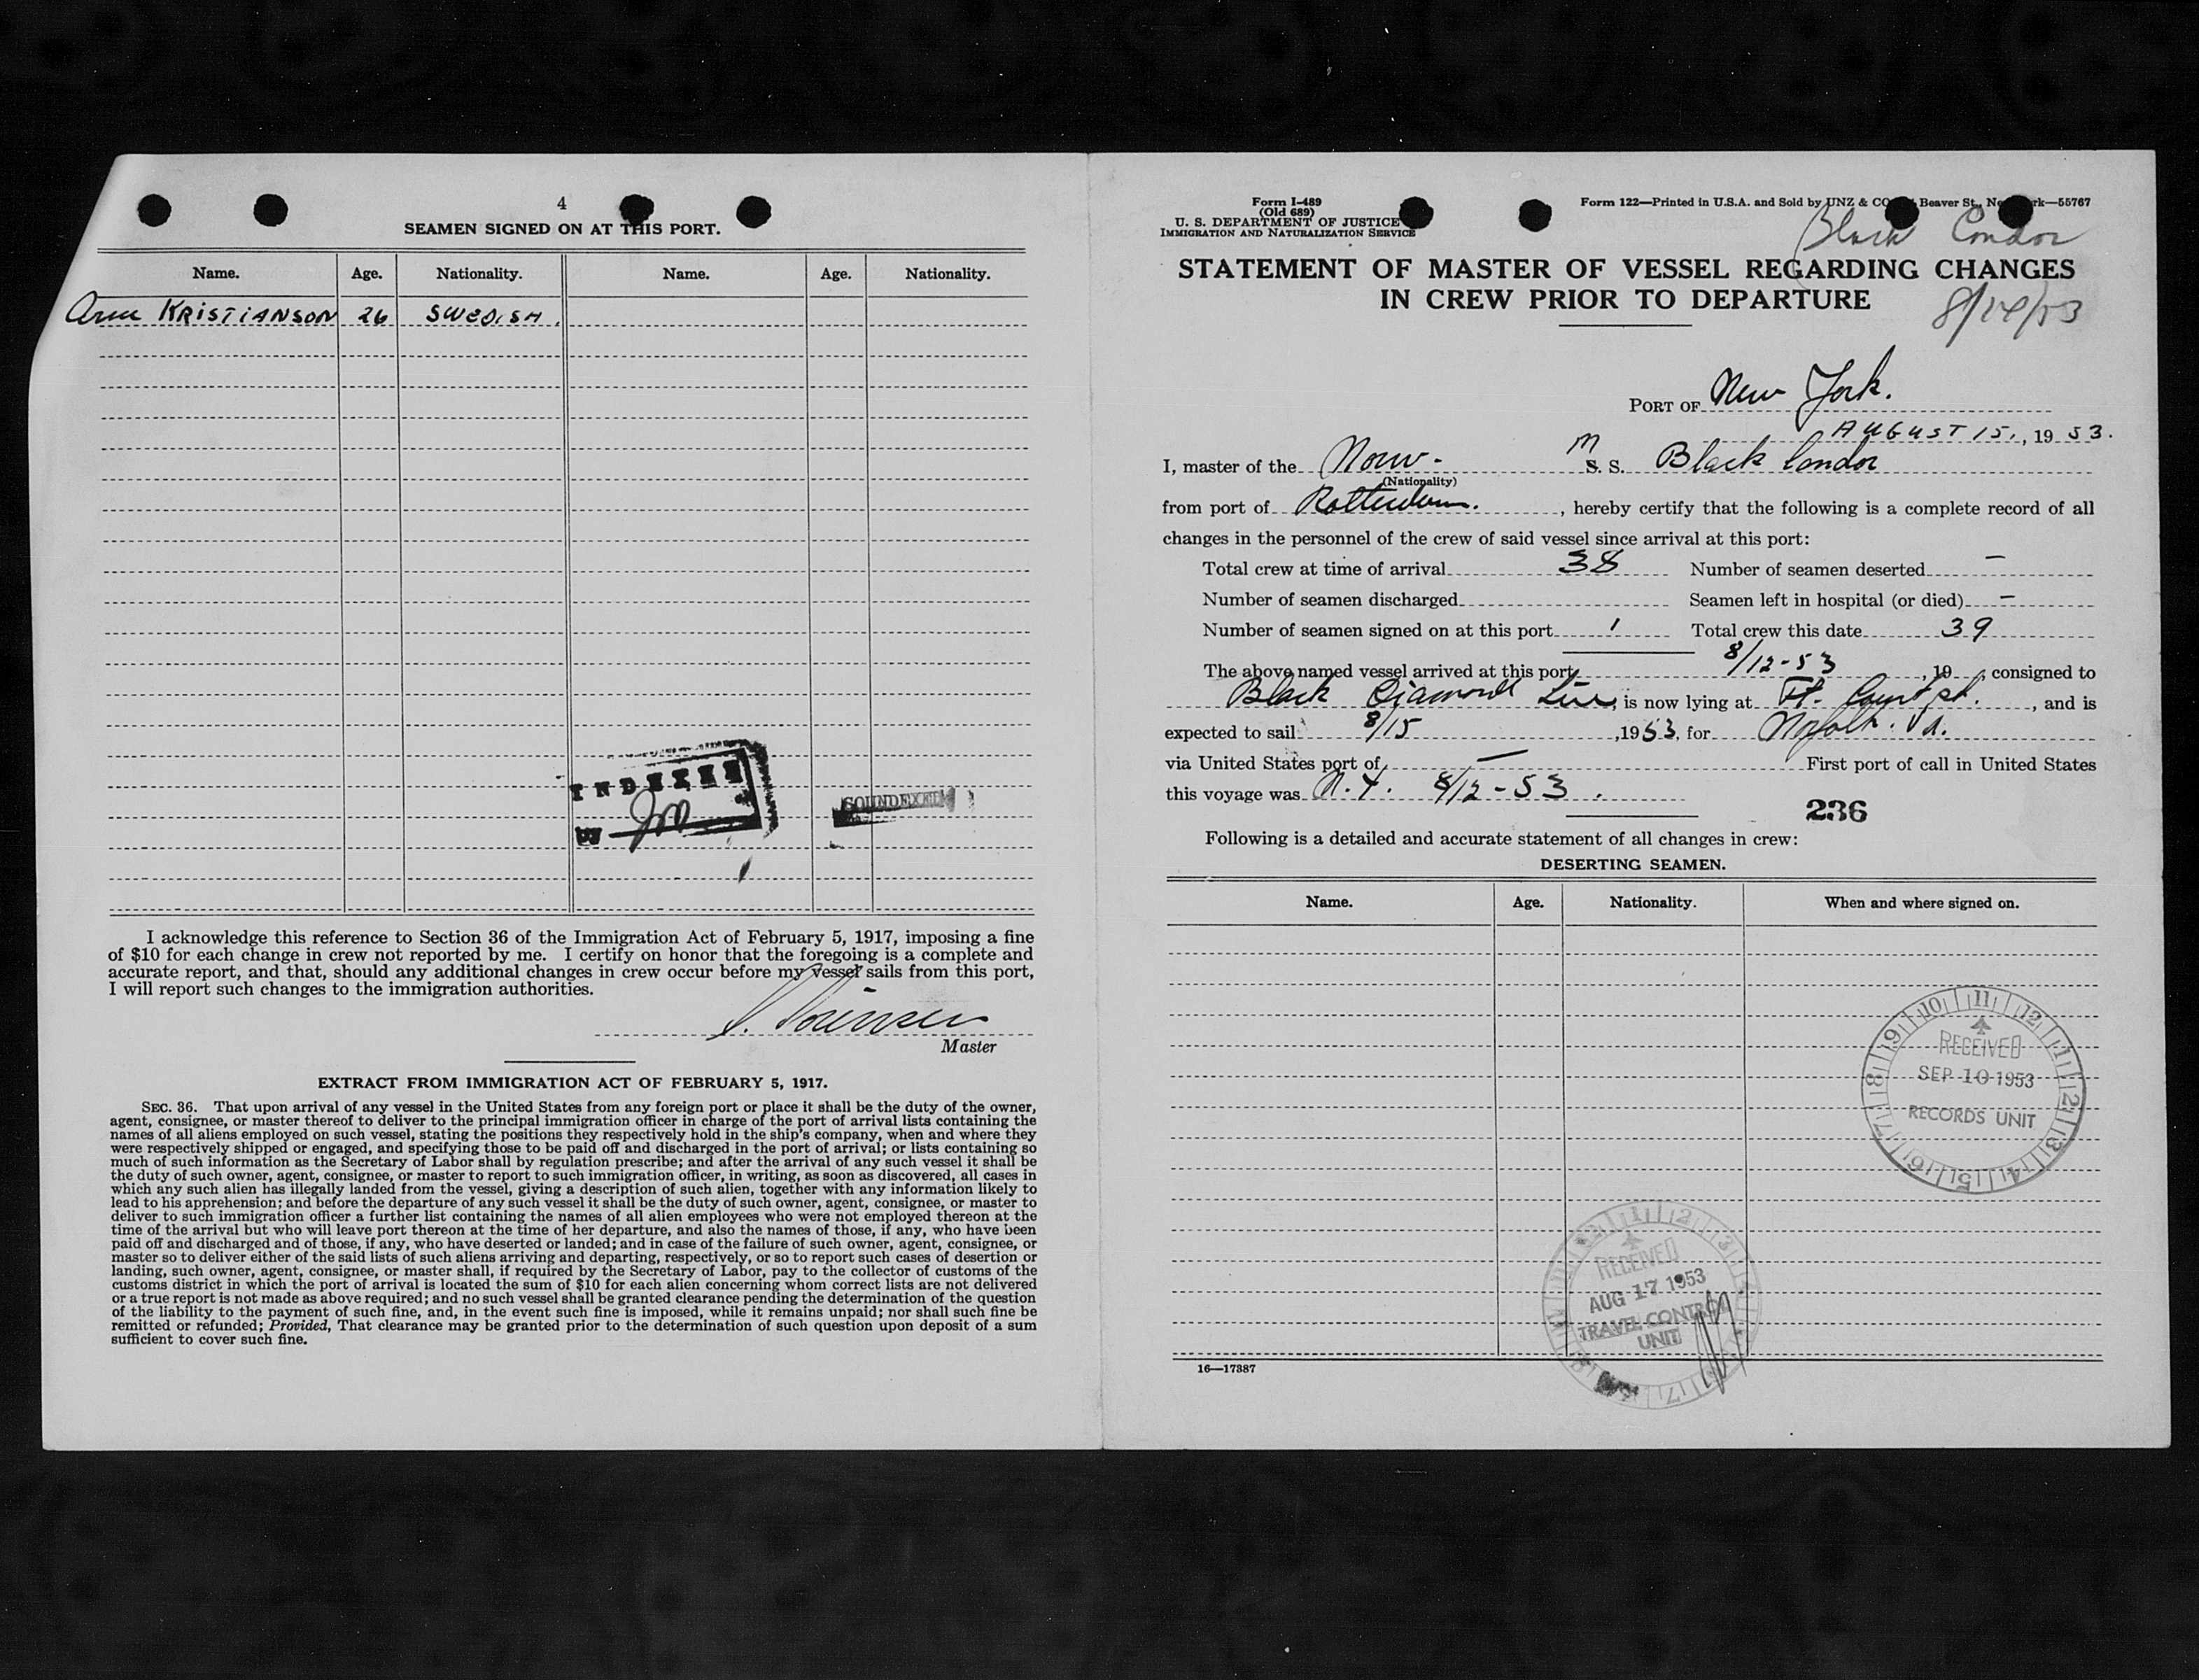 4
SEAMEN SIGNED ON AT THIS PORT.
Name. Age. Nationality. Name. Age. Nationality.
KRISTIANSON 26 SWEDISH.
INDEXED
by
SOUNDEXED
I acknowledge this reference to Section 36 of the Immigration Act of February 5, 1917, imposing a fine
of $10 for each change in crew not reported by me. I certify on honor that the foregoing is a complete and
accurate report, and that, should any additional changes in crew occur before my vessel sails from this port,
I will report such changes to the immigration authorities.
Master
EXTRACT FROM IMMIGRATION ACT OF FEBRUARY 5, 1917.
SEC. 36. That upon arrival of any vessel in the United States from any foreign port or place it shall be the duty of the owner,
agent, consignee, or master thereof to deliver to the principal immigration officer in charge of the port of arrival lists containing the
names of all aliens employed on such vessel, stating the positions they respectively hold in the ship's company, when and where they
were respectively shipped or engaged, and specifying those to be paid off and discharged in the port of arrival; or lists containing so
much of such information as the Secretary of Labor shall by regulation prescribe; and after the arrival of any such vessel it shall be
the duty of such owner, agent, consignee, or master to report to such immigration officer, in writing, as soon as discovered, all cases in
which any such alien has illegally landed from the vessel, giving a description of such alien, together with any information likely to
lead to his apprehension; and before the departure of any such vessel it shall be the duty of such owner, agent, consignee, or master to
deliver to such immigration officer a further list containing the names of all alien employees who were not employed thereon at the
time of the arrival but who will leave port thereon at the time of her departure, and also the names of those, if any, who have been
paid off and discharged and of those, if any, who have deserted or landed; and in case of the failure of such owner, agent, consignee, or
master so to deliver either of the said lists of such aliens arriving and departing, respectively, or so to report such cases of desertion or
landing, such owner, agent, consignee, or master shall, if required by the Secretary of Labor, pay to the collector of customs of the
customs district in which the port of arrival is located the sum of $10 for each alien concerning whom correct lists are not delivered
or a true report is not made as above required; and no such vessel shall be granted clearance pending the determination of the question
of the liability to the payment of such fine, and, in the event such fine is imposed, while it remains unpaid; nor shall such fine be
remitted or refunded; Provided, That clearance may be granted prior to the determination of such question upon deposit of a sum
sufficient to cover such fine.
Form I-489
(Old 689)
U. S. DEPARTMENT OF JUSTICE
IMMIGRATION AND NATURALIZATION SERVICE
Form 122—Printed in U.S.A. and Sold by UNZ & CO Beaver St., 55767
Black Condor
STATEMENT OF MASTER OF VESSEL REGARDING CHANGES
IN CREW PRIOR TO DEPARTURE
PORT OF New York.
AUGUST 15, 1953.
I, master of the Norw. M S. S. Black Condor
(Nationality)
from port of Rotterdam. , hereby certify that the following is a complete record of all
changes in the personnel of the crew of said vessel since arrival at this port:
Total crew at time of arrival 38 Number of seamen deserted —
Number of seamen discharged Seamen left in hospital (or died) —
Number of seamen signed on at this port 1 Total crew this date 39
The above named vessel arrived at this port 8/12-53, 19 , consigned to
Black Diamond Line, is now lying at Ft. , and is
expected to sail 8/15 ,1953, for Norfolk. Va.
via United States port of — First port of call in United States
this voyage was N.Y. 8/12-53.
236
Following is a detailed and accurate statement of all changes in crew:
DESERTING SEAMEN.
Name. Age. Nationality. When and where signed on.
RECEIVED
SEP 10 1953
RECORDS UNIT
RECEIVED
AUG 17 1953
TRAVEL CONTROL
UNIT
16—17387